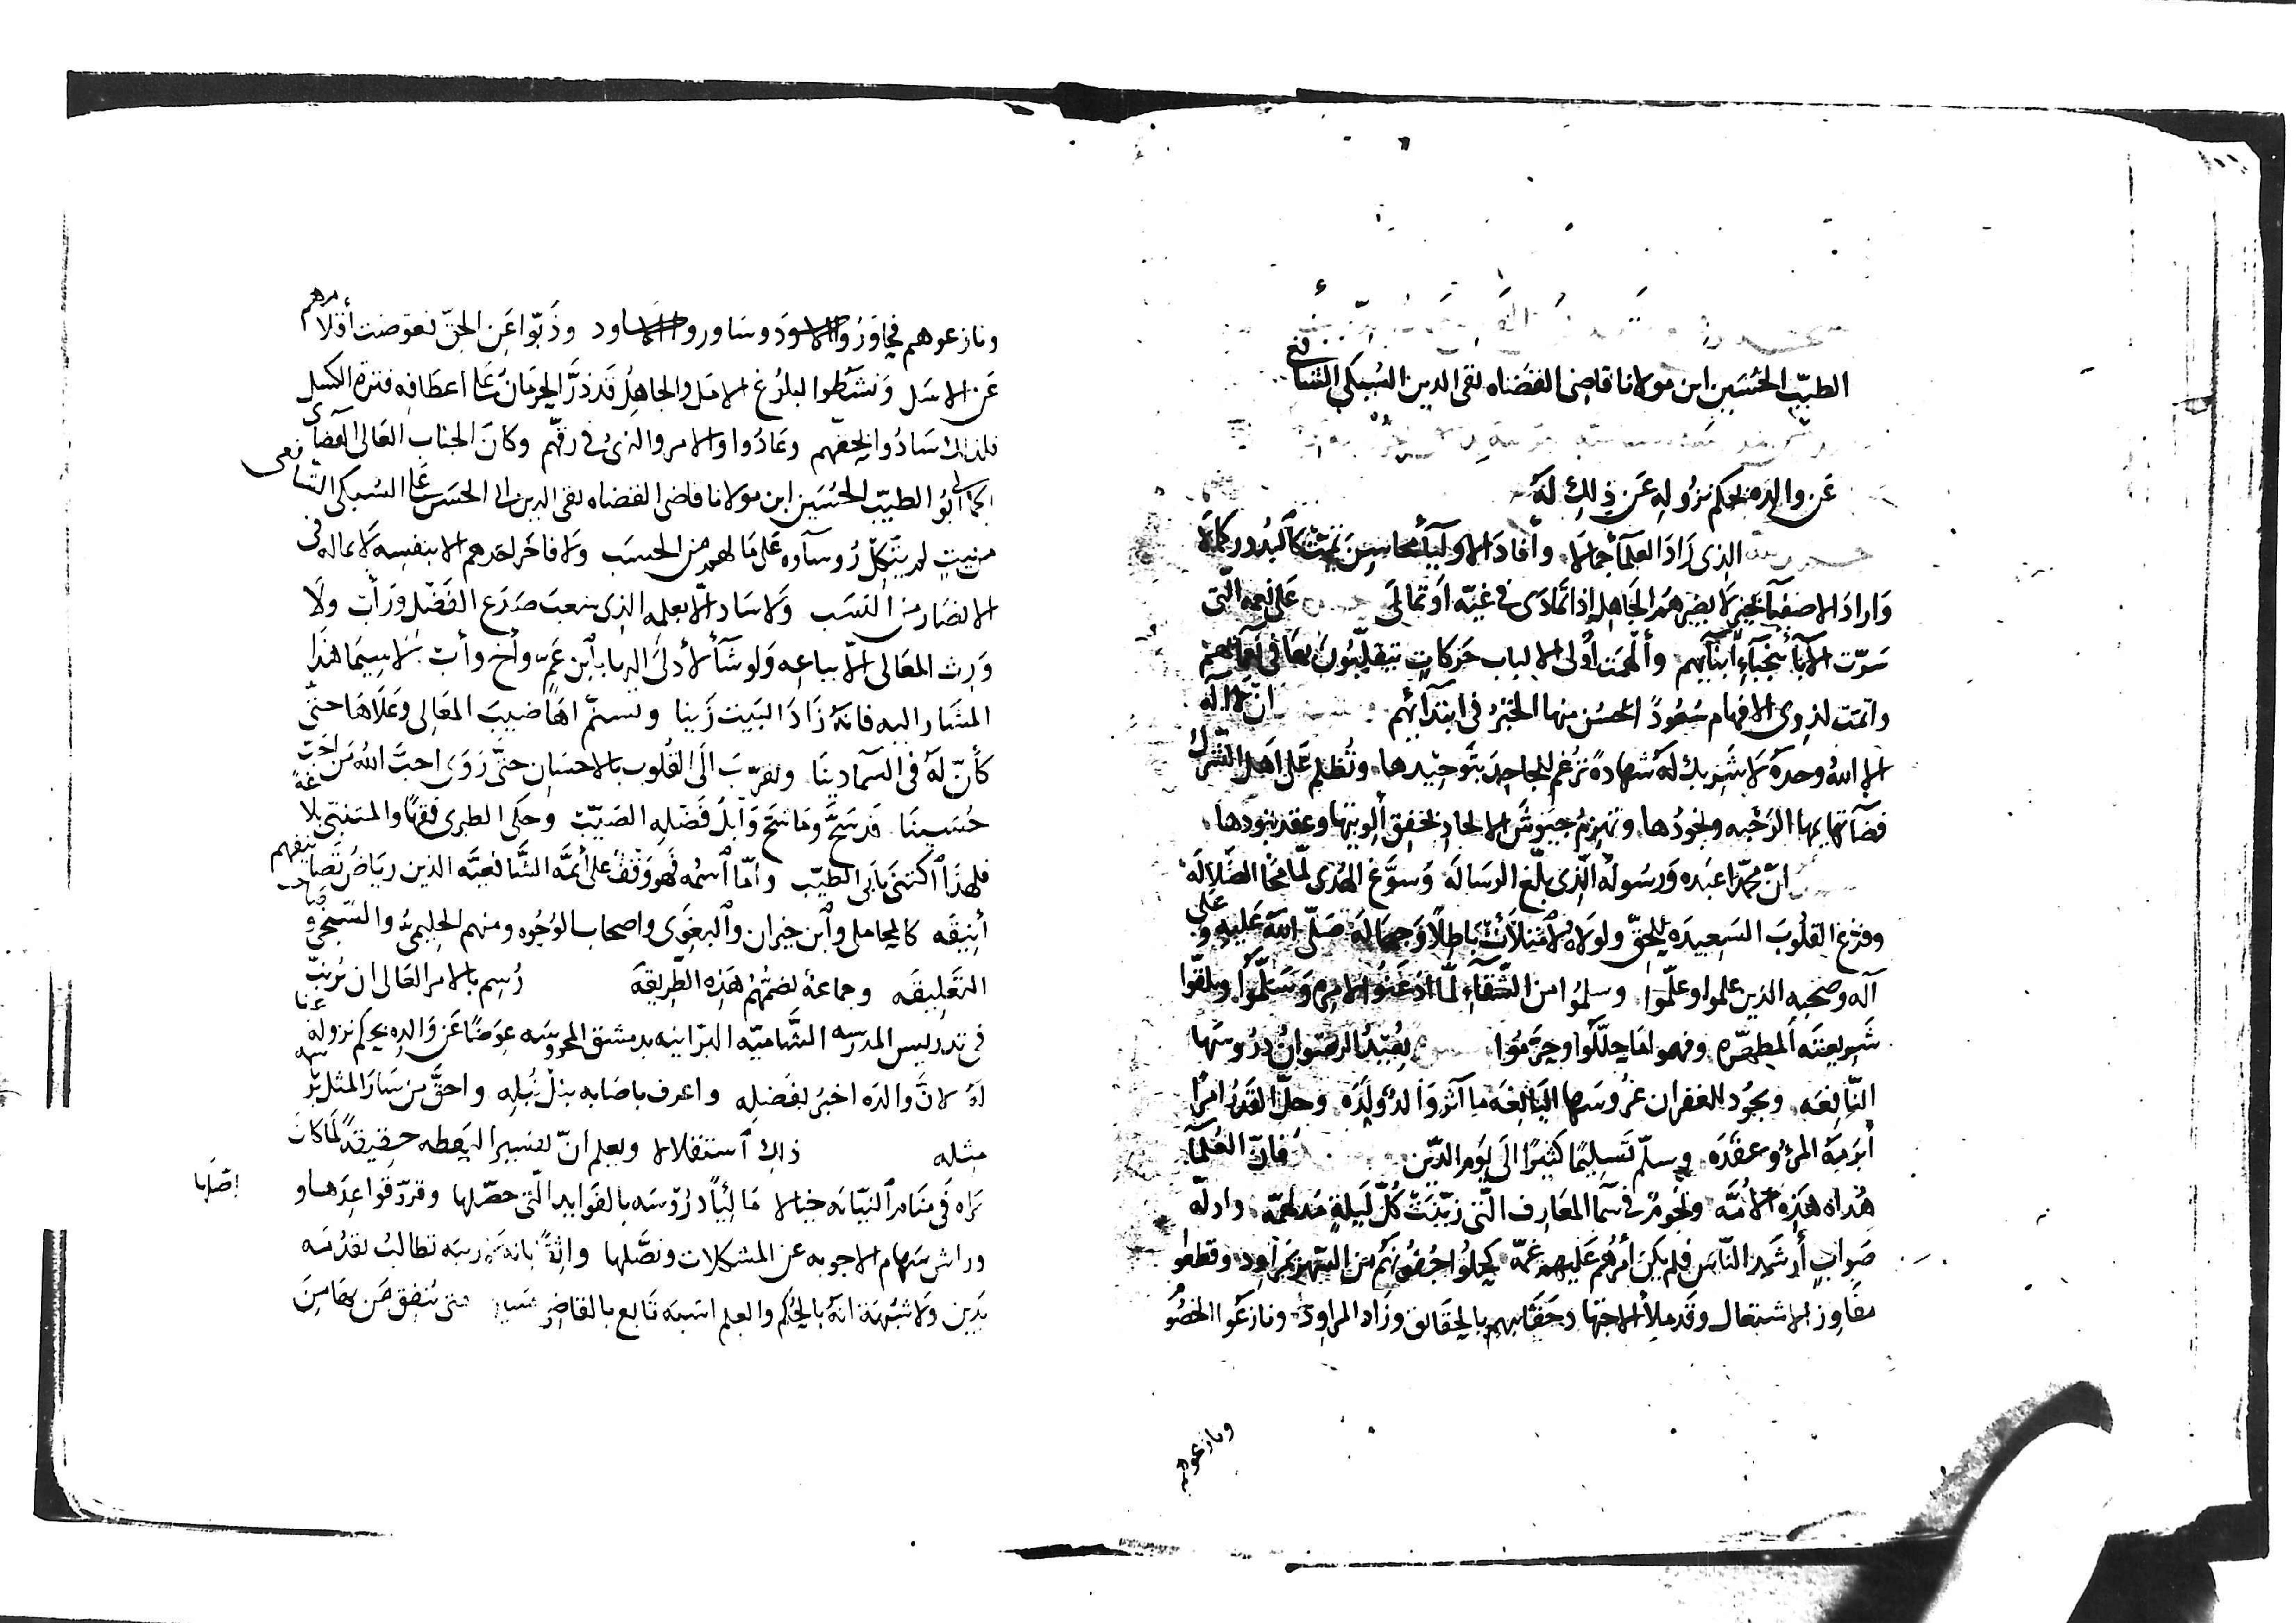 الطيب الحسين ابن مولانا قاضي القضاه تقي الدين السبكي الشافعي
عن والده بحكم نزوله عن ذلك له
الذي زاد العلمآ جمالا وأفاد الاوليآ محاسن تمت كالبدور كمالا
واراد الاصفيآ بخير لا يضيرهم الجاهل إذا تمادى في غيه او تمالى على نعمه التي
سرت الآبآ بنجبآء ابنآيهم وألهمت أولى الالباب حركات يتقلبون بها في نعمآئهم
واتمت لذوى الافهام سعودا احسن منها الخبر في ابتدآئهم ان لا اله
الا الله وحده لا شريك له شهادة ترغم الجاحد بتوحيدها وتظلم على اهل الشرك
فضآئها بها الرحبه ونجودها وتهزم جيوش الالحاد بخفق ألويتها وعقد بنودها
ان محمدا عبده ورسوله الذي بلغ الرساله وسوغ الهدى لما محا الضلاله
وفرغ القلوب السعيده للحق ولولاه لامتلأت باطلا وجهاله صلى الله عليه وعلى
آله وصحبه الذين علموا وعلموا وسلموا من الشقآء لما اذعنوا لامره وسلموا وتلقوا
شريعته المطهره وفهموا ما حللوا وحرموا يعيد الرضوان دروسها
النافعه ويجود الغفران غروسها اليانعه ما آثر والد ولده وحل القدر امرا
أبرمه المرؤ وعقده وسلم تسليما كثيرا الى يوم الدين فان العلمآ
هداة هذه الامه ونجوم في سمآ المعارف التي زينت كل ليلة مدلهمه وادله
صواب أرشد الناس فلم يكن أمرهم عليهم غمه كحلوا جفونهم من السهر بمراود وقطعوا
مفاوز الاشتغال وقد ملأ الاجتهاد حقايبهم بالحقائق وزاد المزاود ونازعوا الخصو
ونازعوهم
ونازعوهم فجاوزوا الاسود وساوروا الاساود وذبوا عن الحق فعوضت أقلامهم
عن الاسل ونشطوا لبلوغ الامل والجاهل قد ذر الحرمان على اعطافه فترة الكسل
فلذلك سادوا بحقهم وعادوا والامر والنهى في رقهم وكان الجناب العالي القضاى
الجمالى ابو الطيب الحسين ابن مولانا قاضي القضاه تقي الدين ابى الحسن على السبكي الشافعى
من بيت لم يتكل رؤسآوه على ما لهم من الحسب ولا فاخر احدهم الا بنفسه لا بماله فى
الانصار من النسب ولا ساد الا بعلمه الذي شعب صدع الفضل ورأب ولا
ورث المعالى الا بباعه ولو شآ لأدلى اليها بابن عم وأخ وأب لا سيما هذا
المشار اليه فانه زاد البيت زينا وتسنم اهاضيب المعالى وعلاها حتى
كأن له في السما دينا وتقرب الى القلوب بالاحسان حتى روى احب الله من احب
حسينا قد سح وما شح وابل فضله الصيب وحكى الطبرى فقها والمتنبى بلاغة
فلهذا اكتنى بابى الطيب واما اسمه فهو وقف على أئمة الشافعيه الذين رياض تصانيفهم
أنيقه كالمحاملى وابن خيران والبغوى واصحاب الوجوه ومنهم الحليمى والسنجى صاحب
التعليقه وجماعة تضمهم هذه الطريقه رسم بالامر العالى ان يرتب
فى تدريس المدرسه الشاميه البرانيه بدمشق المحروسه عوضا عن والده بحكم نزوله عنها
له لان والده اخبر بفضله واعرف باصابه نبل نبله واحق من سار المثل بتر
مثله ذلك استقلالا ويعلم ان تفسير اليقظه حقيقة لما كان
يراه في منام النيابه خيالا مالئا دروسه بالفوايد التي حصلها وقرر قواعدها و
اصلها
وراش سهام الاجوبه عن المشكلات ونصلها واثقا بانه تطالب بقدومه
بدين ولا شبهة انه بالحكم والعلم اشبه تابع بالقاضى حتى تنفق من بضامن